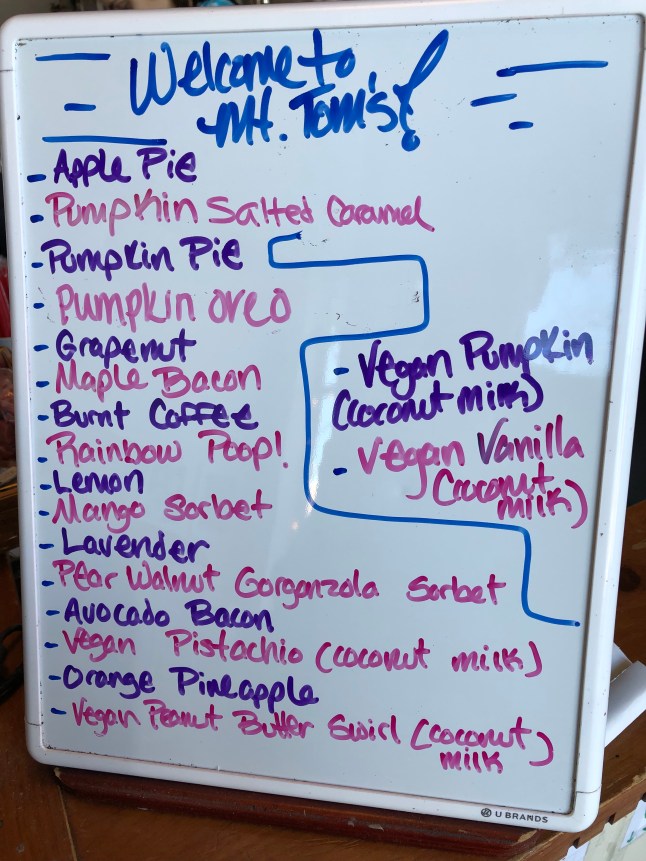 Welcome to
Mt. Tom's!
- Apple Pie
- Pumpkin Salted Caramel
- Pumpkin Pie
- Pumpkin oreo
- Grapenut
- Maple Bacon
- Burnt Coffee
- Rainbow Poop!
- Lemon
- Mango Sorbet
- Lavender
- Pear Walnut Gorgonzola Sorbet
- Avocado Bacon
- Vegan Pistachio (coconut milk)
- Orange Pineapple
- Vegan Peanut Butter Swirl (coconut
milk)
- Vegan Pumpkin
(coconut milk)
- Vegan Vanilla
(coconut
milk)
U BRANDS